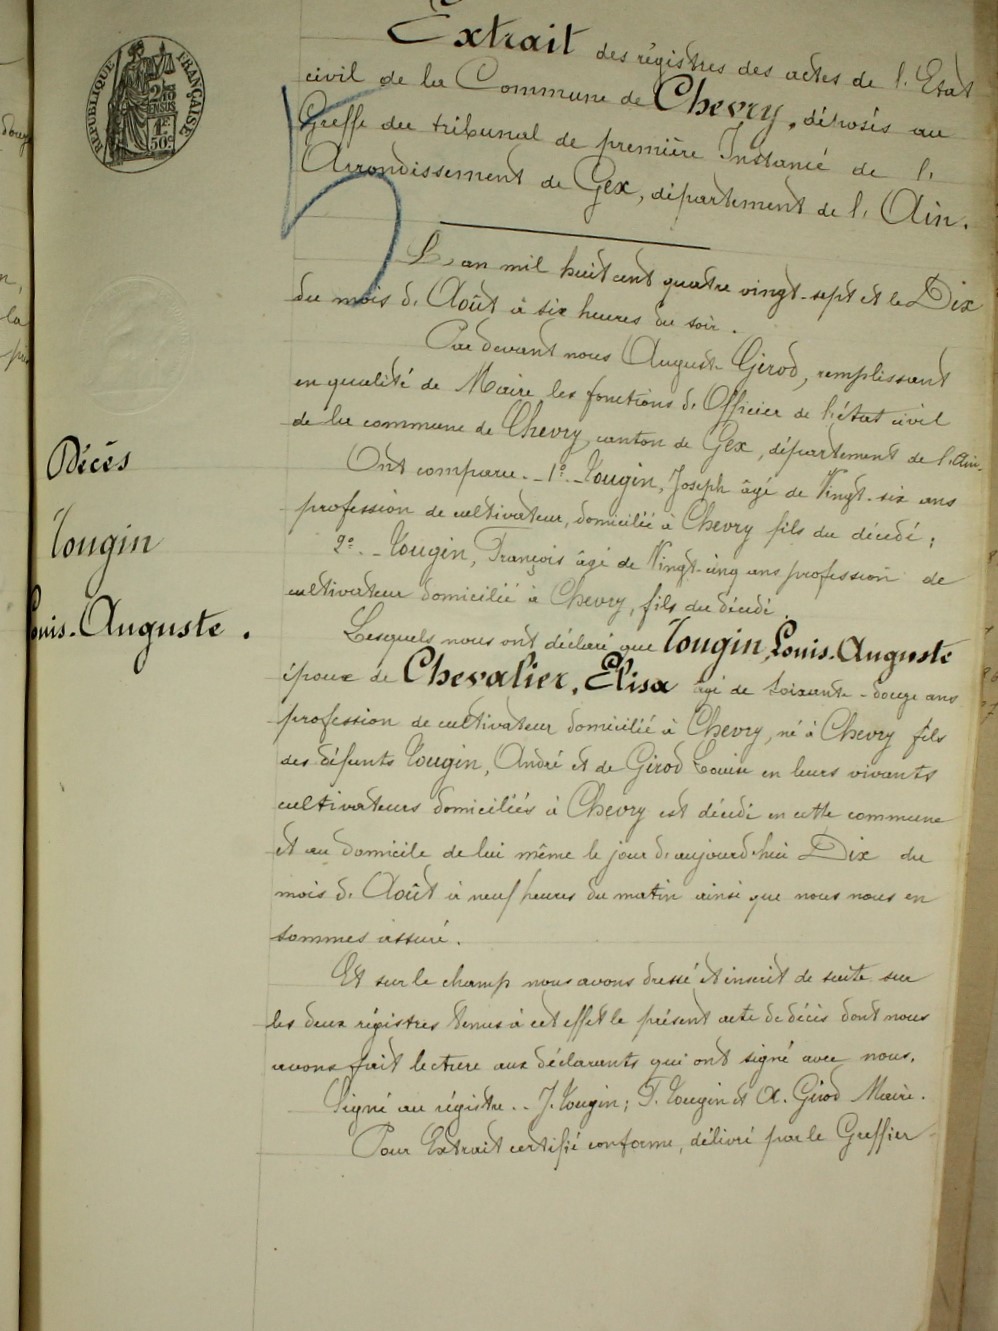 Extrait des régistres des actes de l'Etat
civil de la Commune de Chevry, déposés au
Greffe du tribunal de première Instance de l'
Arrondissement de Gex, département de l'Ain.
REPUBLIQUE FRANÇAISE
2/10 EN SUS
1F 50c
L'an mil huit cent quatre vingt-sept et le Dix
du mois d'Août à six heures du soir.
Par devant nous Auguste Girod, remplissant
en qualité de Maire les fonctions d'Officier de l'état civil
de la commune de Chevry, canton de Gex, département de l'Ain.
Ont comparu - 1º - Tougin, Joseph âgé de Vingt-six ans
profession de cultivateur, domicilié à Chevry fils du décédé;
2º - Tougin, François âgé de Vingt-cinq ans profession de
cultivateur domicilié à Chevry, fils du décédé.
Lesquels nous ont déclaré que Tougin, Louis-Auguste
époux de Chevalier, Elisa âgé de soixante-douze ans
profession de cultivateur domicilié à Chevry, né à Chevry fils
des défunts Tougin, André et de Girod Louise en leurs vivants
cultivateurs domiciliés à Chevry est décédé en cette commune
et au domicile de lui même le jour d'aujourd'hui Dix du
mois d'Août à neuf heures du matin ainsi que nous nous en
sommes assuré.
Et sur le champ nous avons dressé et inscrit de suite sur
les deux régistres tenus à cet effet le présent acte de décès dont nous
avons fait lecture aux déclarants qui ont signé avec nous.
Signé au régistre - J. Tougin; F. Tougin et A. Girod Maire.
Pour Extrait certifié conforme, délivré par le Greffier
Décès
Tougin
Louis-Auguste.